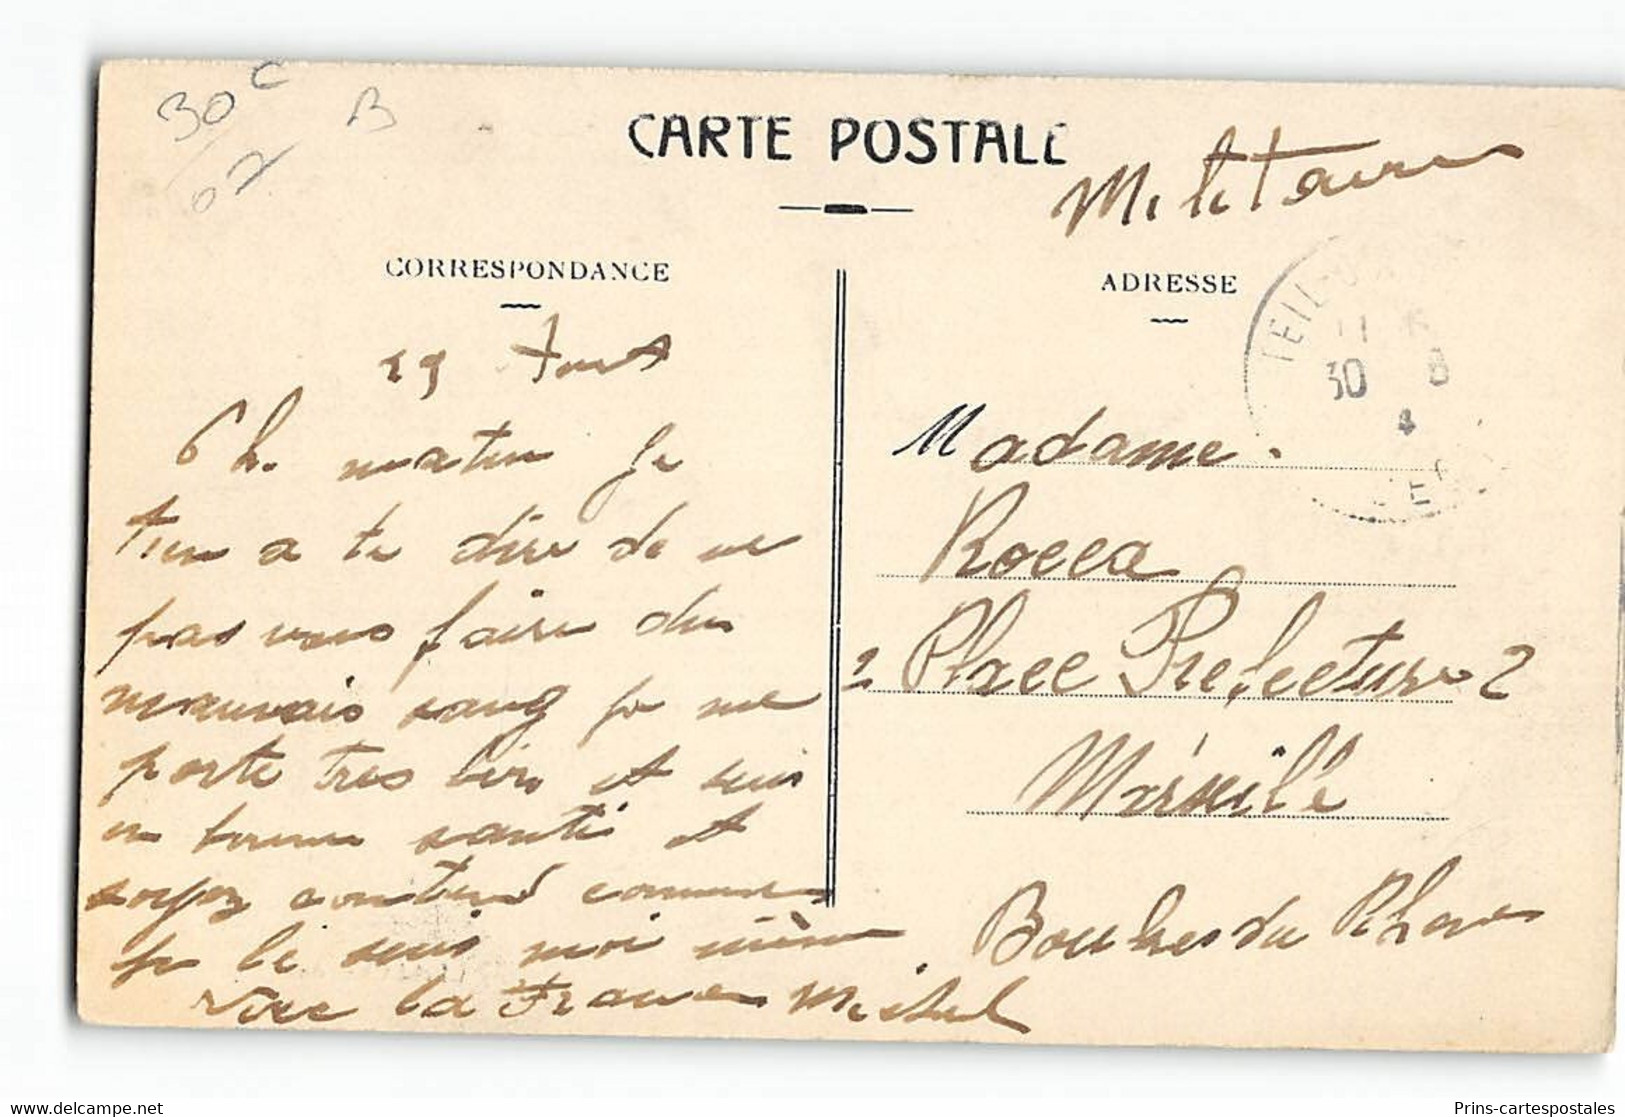 30 c
B
07
CARTE POSTALE
Militaire
CORRESPONDANCE
ADRESSE
TEIL
30 8
4
29 Aout
Ch. maten je
tien a te dire de ne
pas vous faire du
mauvais sang je me
porte tres bien et suis
en bonne santé et
soyez content comme
je le suis moi même
vive la France Michel
Madame.
Rocca
2 Place Prefecture 2
Marseille
Bouches du Rhone
Prins-cartespostales.com
Prins-cartespostales